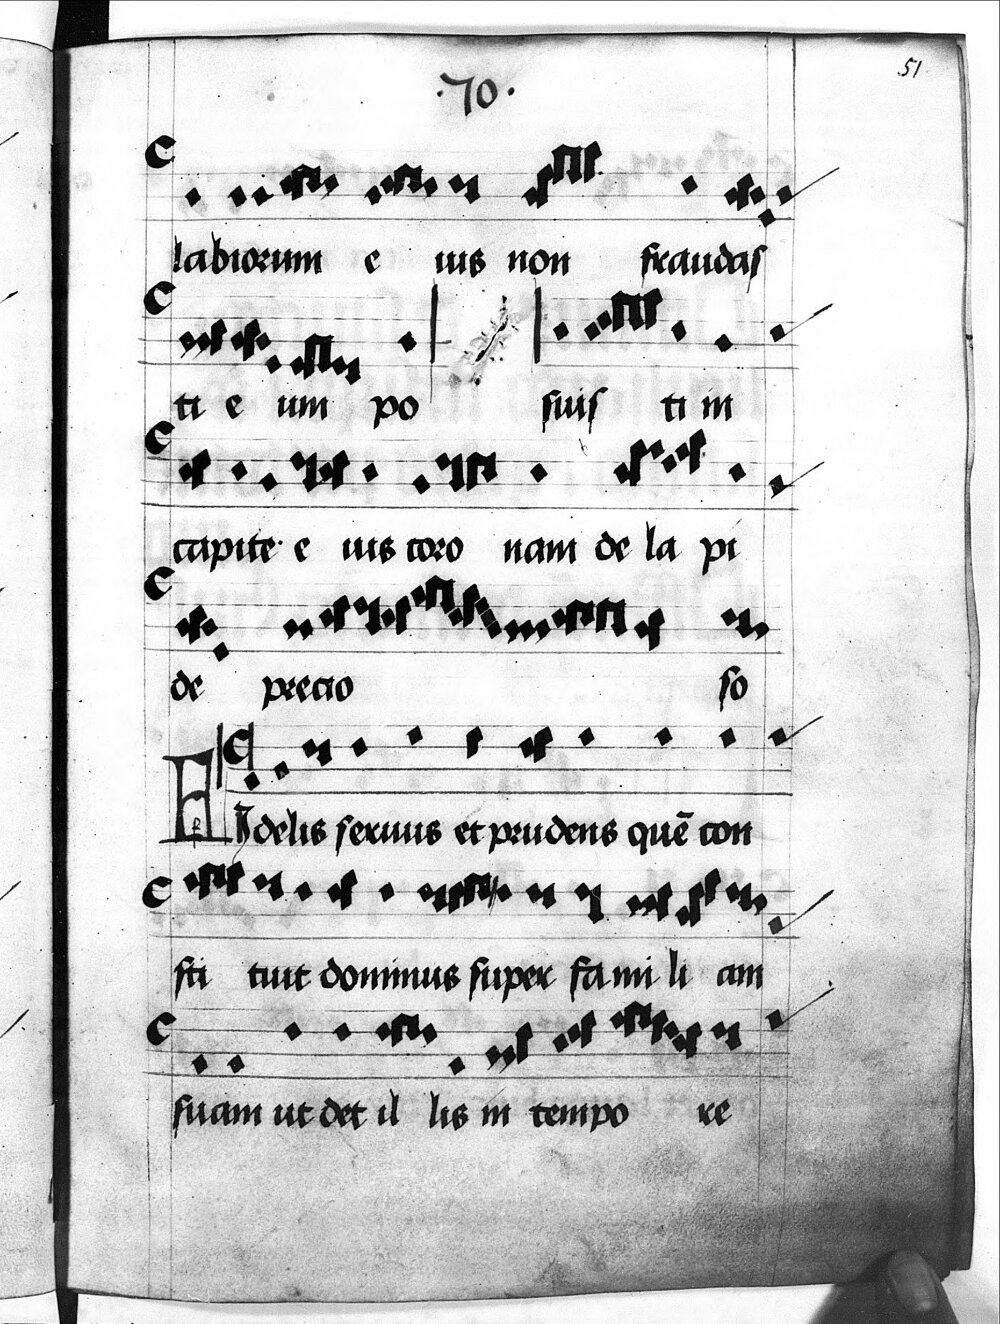 51
·70·
labiorum e ius non fraudas
ti e um po suis ti in
capite e ius coro nam de la pi
de precio so
Fidelis servus et prudens quē con
sti tuit dominus super fa mi li am
suam ut det il lis in tempo re